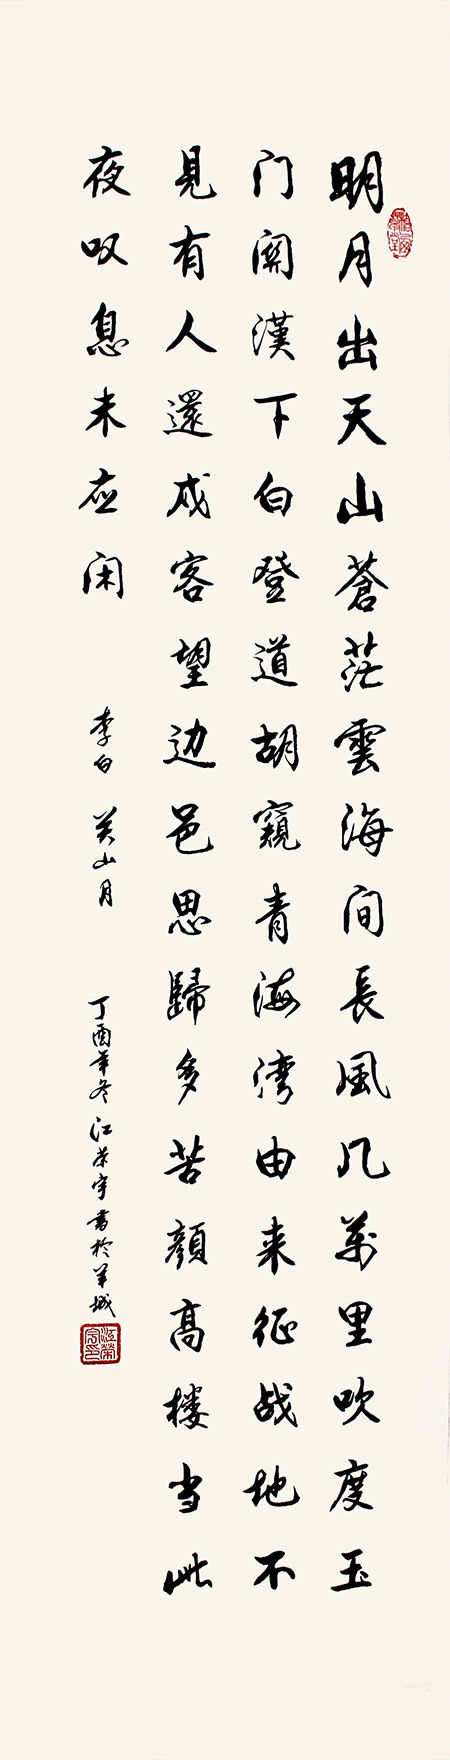 明月出天山蒼茫雲海间長風几萬里吹度玉
门関漢下白登道胡窺青海湾由来征战地不
見有人還戍客望边邑思歸多苦顏高楼当此
夜叹息未应闲
李白 关山月
丁酉年冬江荣宇書於羊城
江榮宇印